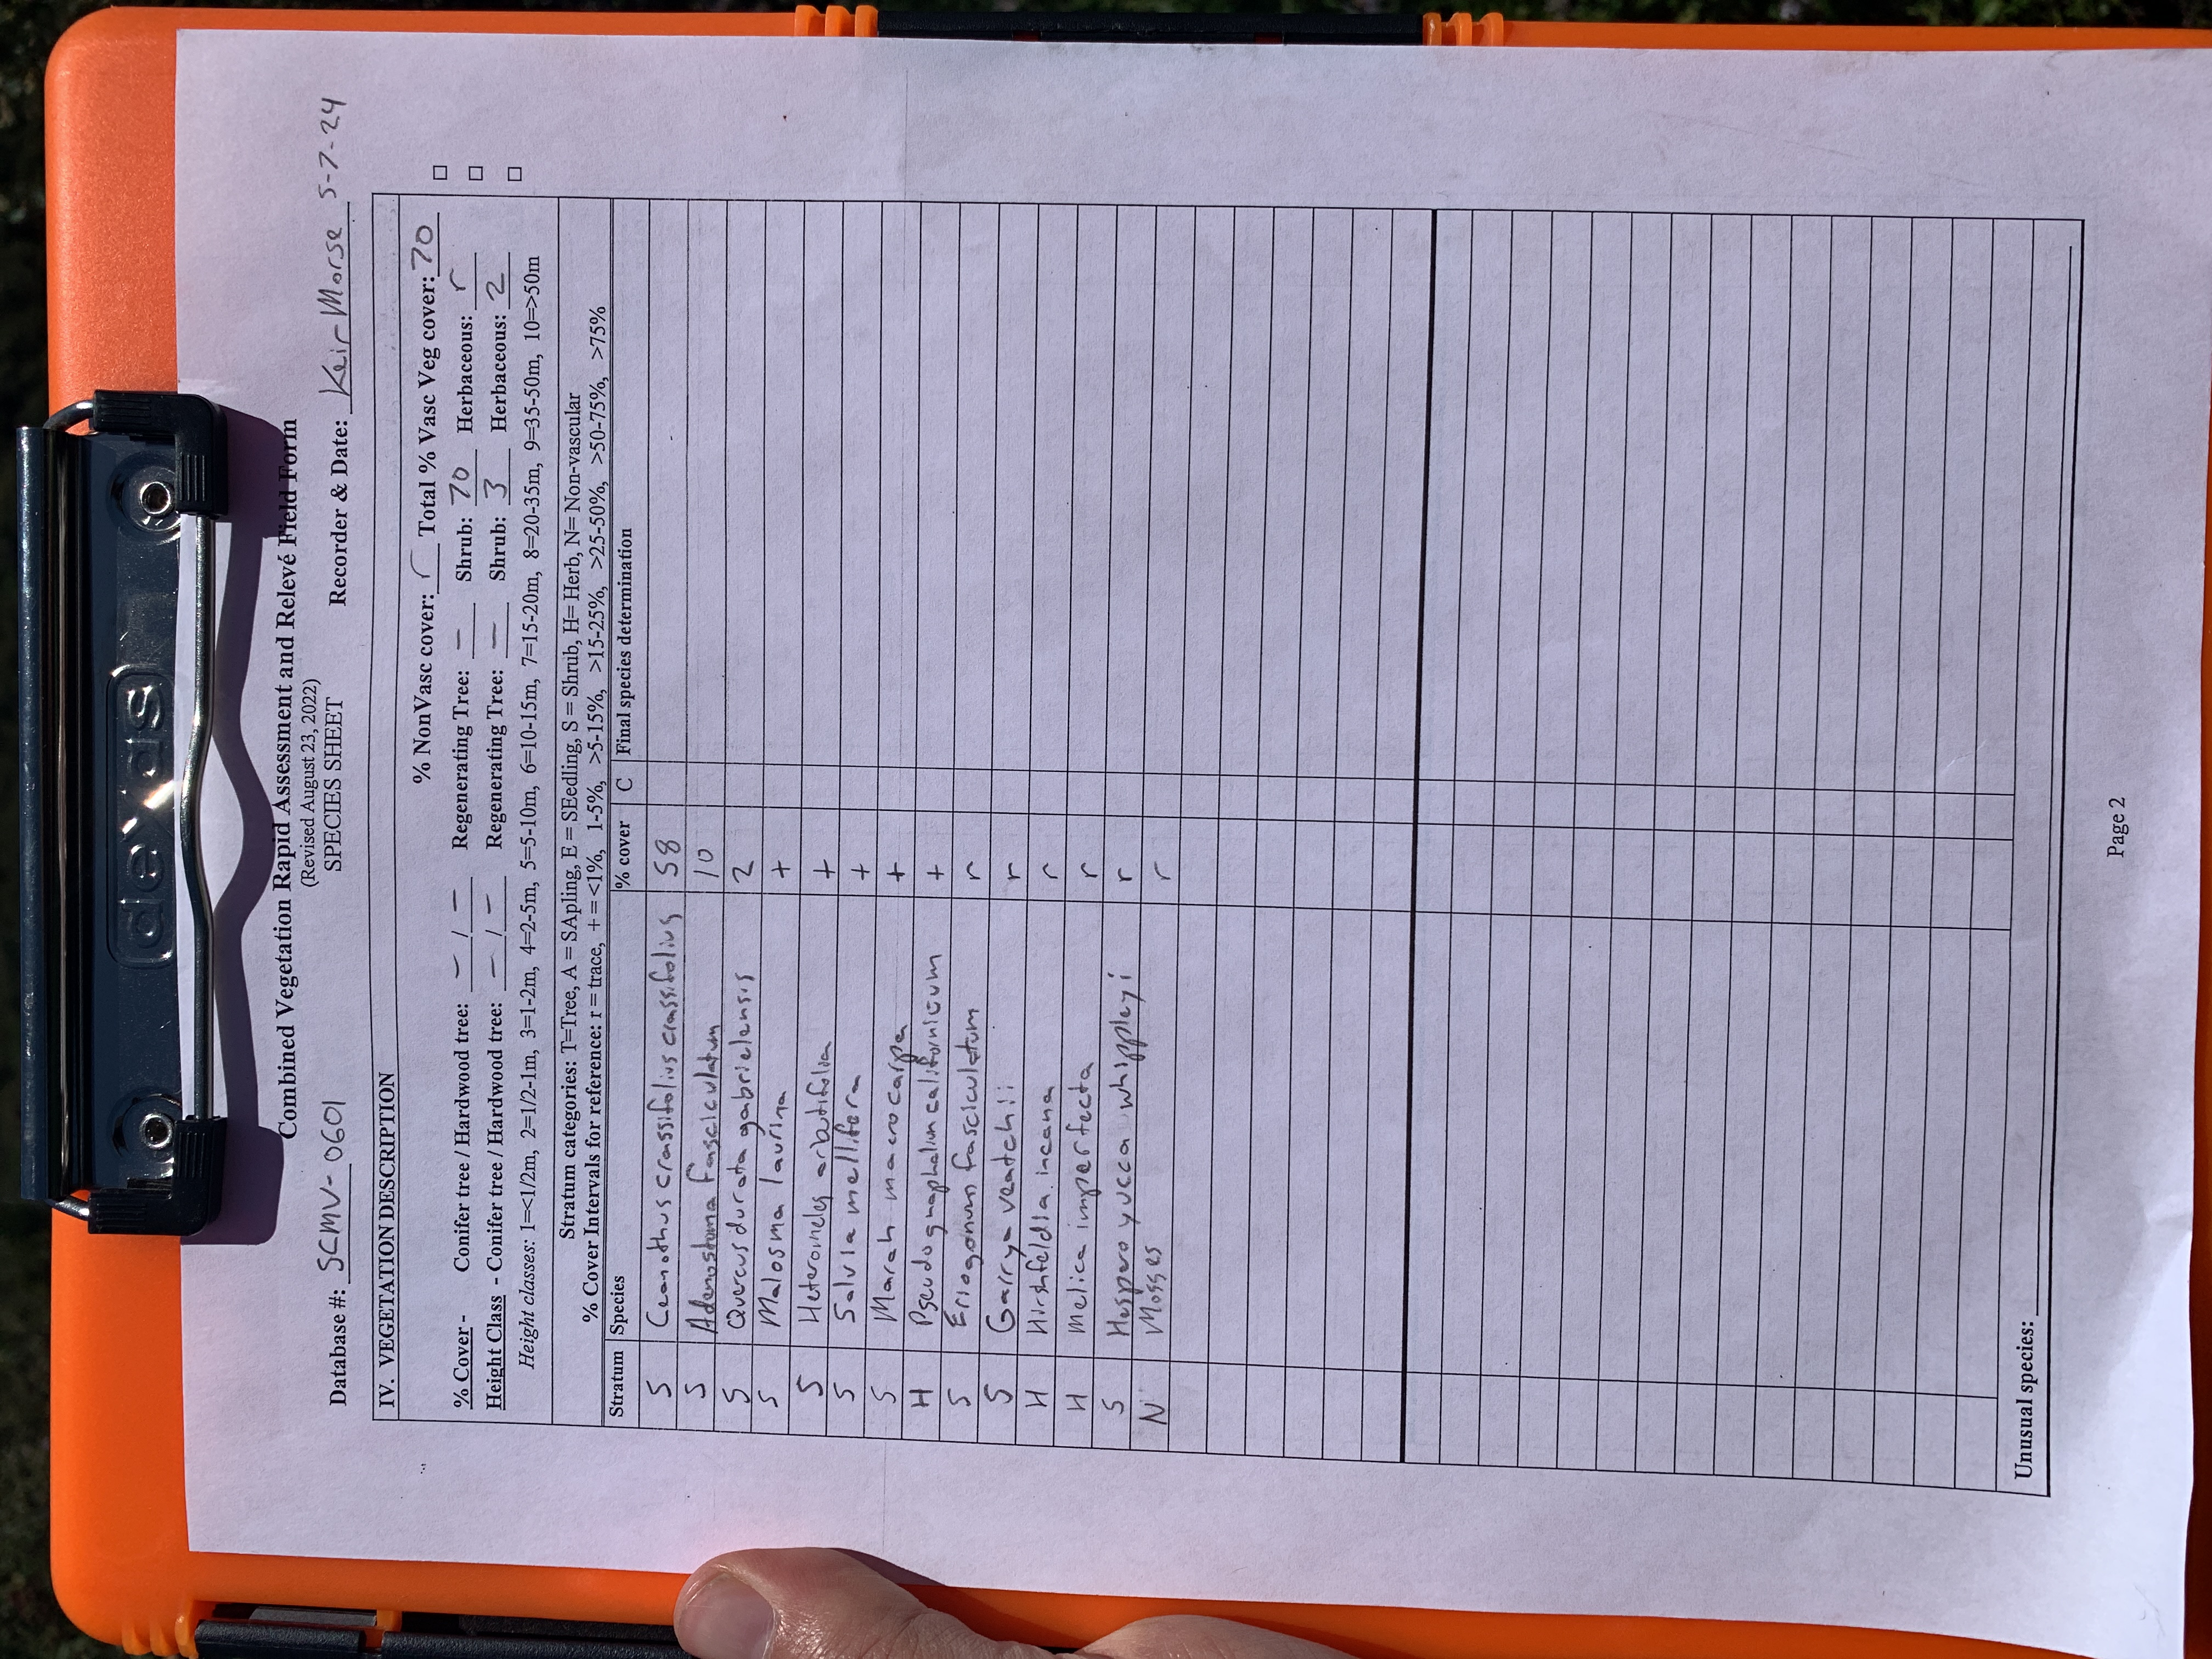 dexas
Combined Vegetation Rapid Assessment and Relevé Field Form
(Revised August 23, 2022)
SPECIES SHEET
Database #: SCMV-0601 Recorder & Date: Keir Morse 5-7-24
IV. VEGETATION DESCRIPTION
% NonVasc cover: r Total % Vasc Veg cover: 70
% Cover - Conifer tree / Hardwood tree: - / - Regenerating Tree: - Shrub: 70 Herbaceous: r
Height Class - Conifer tree / Hardwood tree: - / - Regenerating Tree: - Shrub: 3 Herbaceous: 2
Height classes: 1=<1/2m, 2=1/2-1m, 3=1-2m, 4=2-5m, 5=5-10m, 6=10-15m, 7=15-20m, 8=20-35m, 9=35-50m, 10=>50m
Stratum categories: T=Tree, A = SApling, E = SEedling, S = Shrub, H= Herb, N= Non-vascular
% Cover Intervals for reference: r = trace, + = <1%, 1-5%, >5-15%, >15-25%, >25-50%, >50-75%, >75%
Stratum Species % cover C Final species determination
S Ceanothus crassifolius crassifolius 58
S Adenostoma fasciculatum 10
S Quercus durata gabrielensis 2
S Malosma laurina +
S Heteromeles arbutifolia +
S Salvia mellifera +
S Marah macrocarpa +
H Pseudognaphalium californicum +
S Eriogonum fasciculatum r
S Garrya veatchii r
H Hirshfeldia incana r
H Melica imperfecta r
S Hesperoyucca whippleyi r
N Mosses r
Unusual species:
Page 2